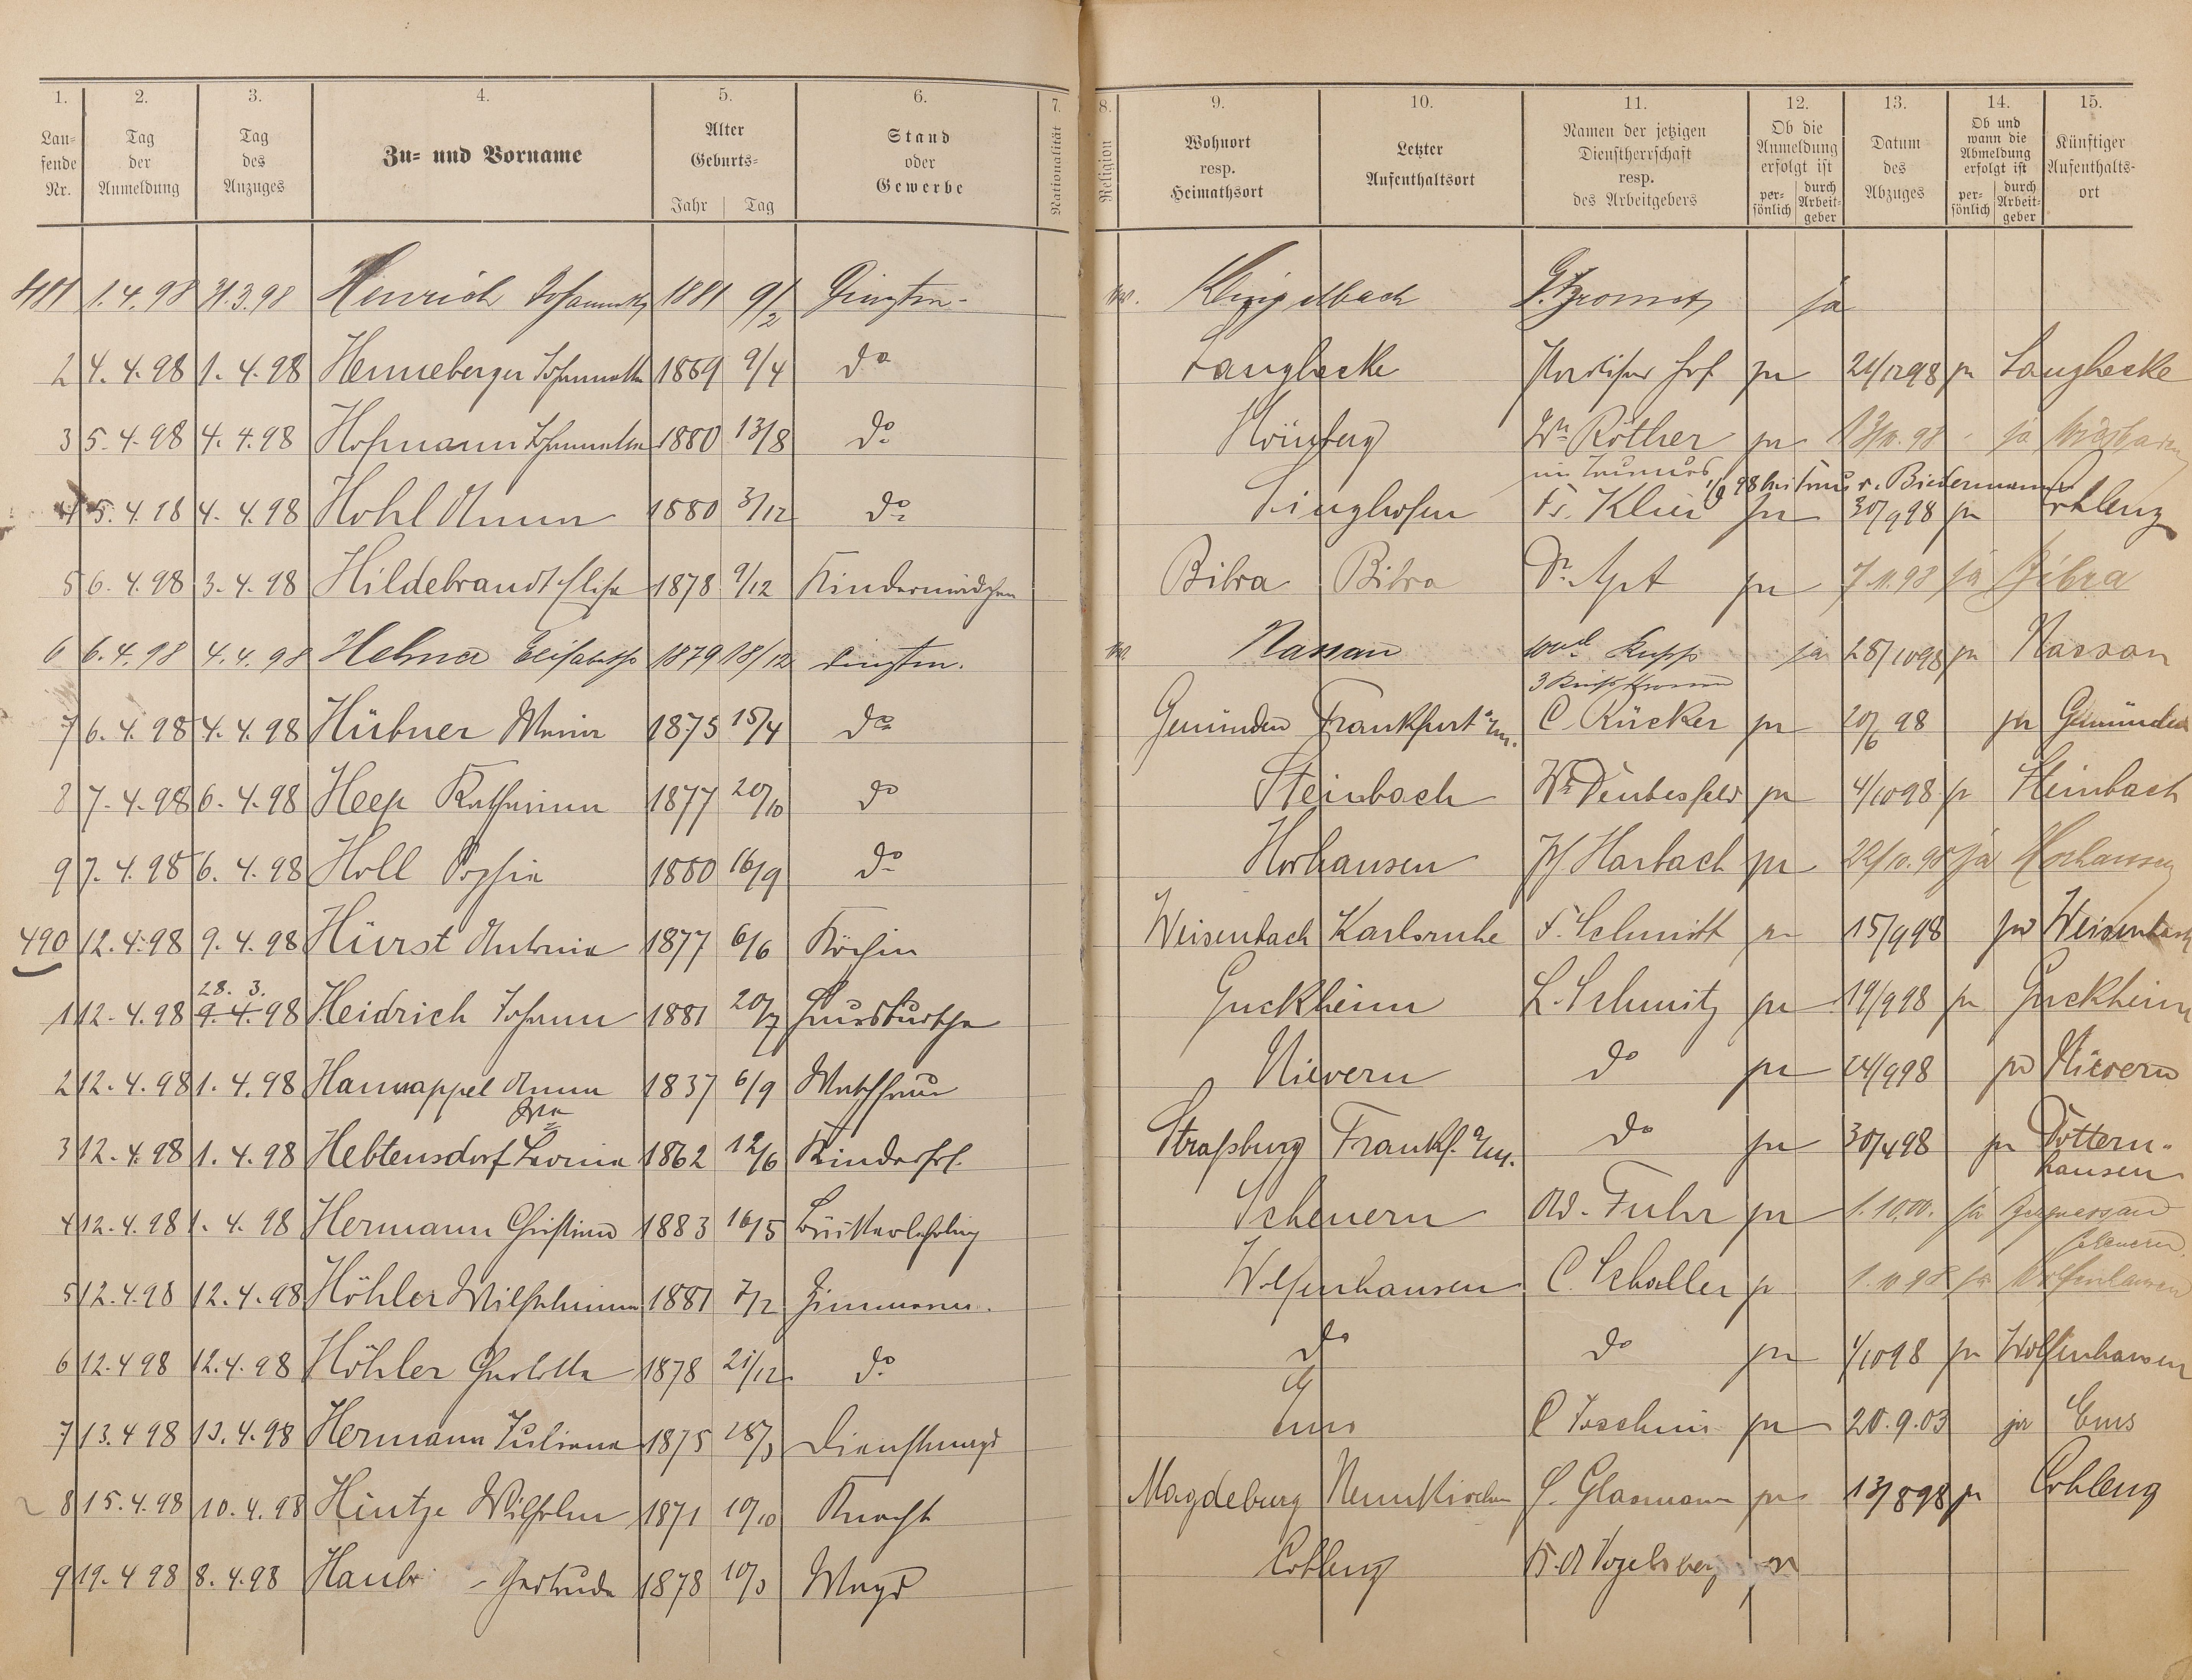 1. 2. 3. 4. 5. 6. 7. 8. 9. 10. 11. 12. 13. 14. 15.
Lau-
fende
Nr.
Tag
der
Anmeldung
Tag
des
Anzuges
Zu- und Vorname
Alter
Geburts-
Jahr Tag
Stand
oder
Gewerbe
Nationalität
Religion
Wohnort
resp.
Heimathsort
Letzter
Aufenthaltsort
Namen der jetzigen
Dienstherrschaft
resp.
des Arbeitgebers
Ob die
Anmeldung
erfolgt ist
per-
sönlich
durch
Arbeit-
geber
Datum
des
Abzuges
Ob und
wann die
Abmeldung
erfolgt ist
per-
sönlich
durch
Arbeit-
geber
Künftiger
Aufenthalts-
ort
481 1.4.98 31.3.98 Henrich 1881 9/2 Klingelbach ja
2 4.4.98 1.4.98 Henneberger Johannette 1869 9/4 do Langhecke ja 21/1298 ja Langhecke
3 5.4.98 4.4.98 Hofmann Johannette 1880 13/8 do Wn Röther ja ja Wiesbaden
v. Biedermann
4 5.4.98 4.4.98 Hohl Anna 1880 3/12 do Singhofen Fr. Klein ja 30/998 ja Coblenz
5 6.4.98 3.4.98 Hildebrandt Elise 1878 9/12 Kindermädchen Bibra Bibra Dr. Apt ja 7.11.98 ja Bibra
6 6.4.98 4.4.98 Hehner Elisabeth 1879 18/12 Nassau ja 28/1098 ja Nassau
7 6.4.98 4.4.98 Hübner Maria 1875 15/4 do Gemünden Frankfurt a/m. C Rücker ja 20/6 98 ja Gemünden
8 7.4.98 6.4.98 Heep Katharina 1877 20/10 do Steinbach Wn Deubesfeld ja 4/1098 ja Steinbach
9 7.4.98 6.4.98 Holl Sophie 1880 16/9 do Horhausen Jos Harbach ja 22/10.98 ja Horhausen
490 12.4.98 9.4.98 Hürst Antonie 1877 6/6 Köchin Weisenbach Karlsruhe F. Schmitt ja 15/998 ja Weisenbach
28. 3.
1 12.4.98 9.4.98 Heidrich Johann 1881 20/7 Hausbursche Guckheim L. Schmitz ja 19/998 ja Guckheim
2 12.4.98 1.4.98 Hannappel Anna 1837 6/9 Waschfrau Nievern do ja 24/998 ja Nievern
3 12.4.98 1.4.98 Hebtensdorf Leonie 1862 12/6 Kinderfrl. Straßburg Frankf. a/m. do ja 30/498 ja Dottern-
hausen
4 12.4.98 1.4.98 Hermann Christian 1883 16/5 Bäckerlehrling Scheuern Ad. Fuhr ja 1.10.00. ja Bergnassau
Scheuern
5 12.4.98 12.4.98 Höhler Wilhelmine 1881 7/2 Zimmerm. Wolfenhausen C. Schaller ja 1.10 98 ja Wolfenhausen
6 12.4 98 12.4.98 Höhler Charlotte 1878 21/12 do do do ja 1/1098 ja Wolfenhausen
7 13.4 98 13.4.98 Hermann Juliane 1875 28/3 Dienstmagd Ems ja 20.9.03 ja Ems
8 15.4.98 10.4.98 Hintze Wilhelm 1871 10/10 Knecht Magdeburg Neunkirchen Glasmann ja 13/898 ja Coblenz
9 19.4 98 8.4.98 Gertrude 1878 10/3 Magd Coblenz Vogelsberg